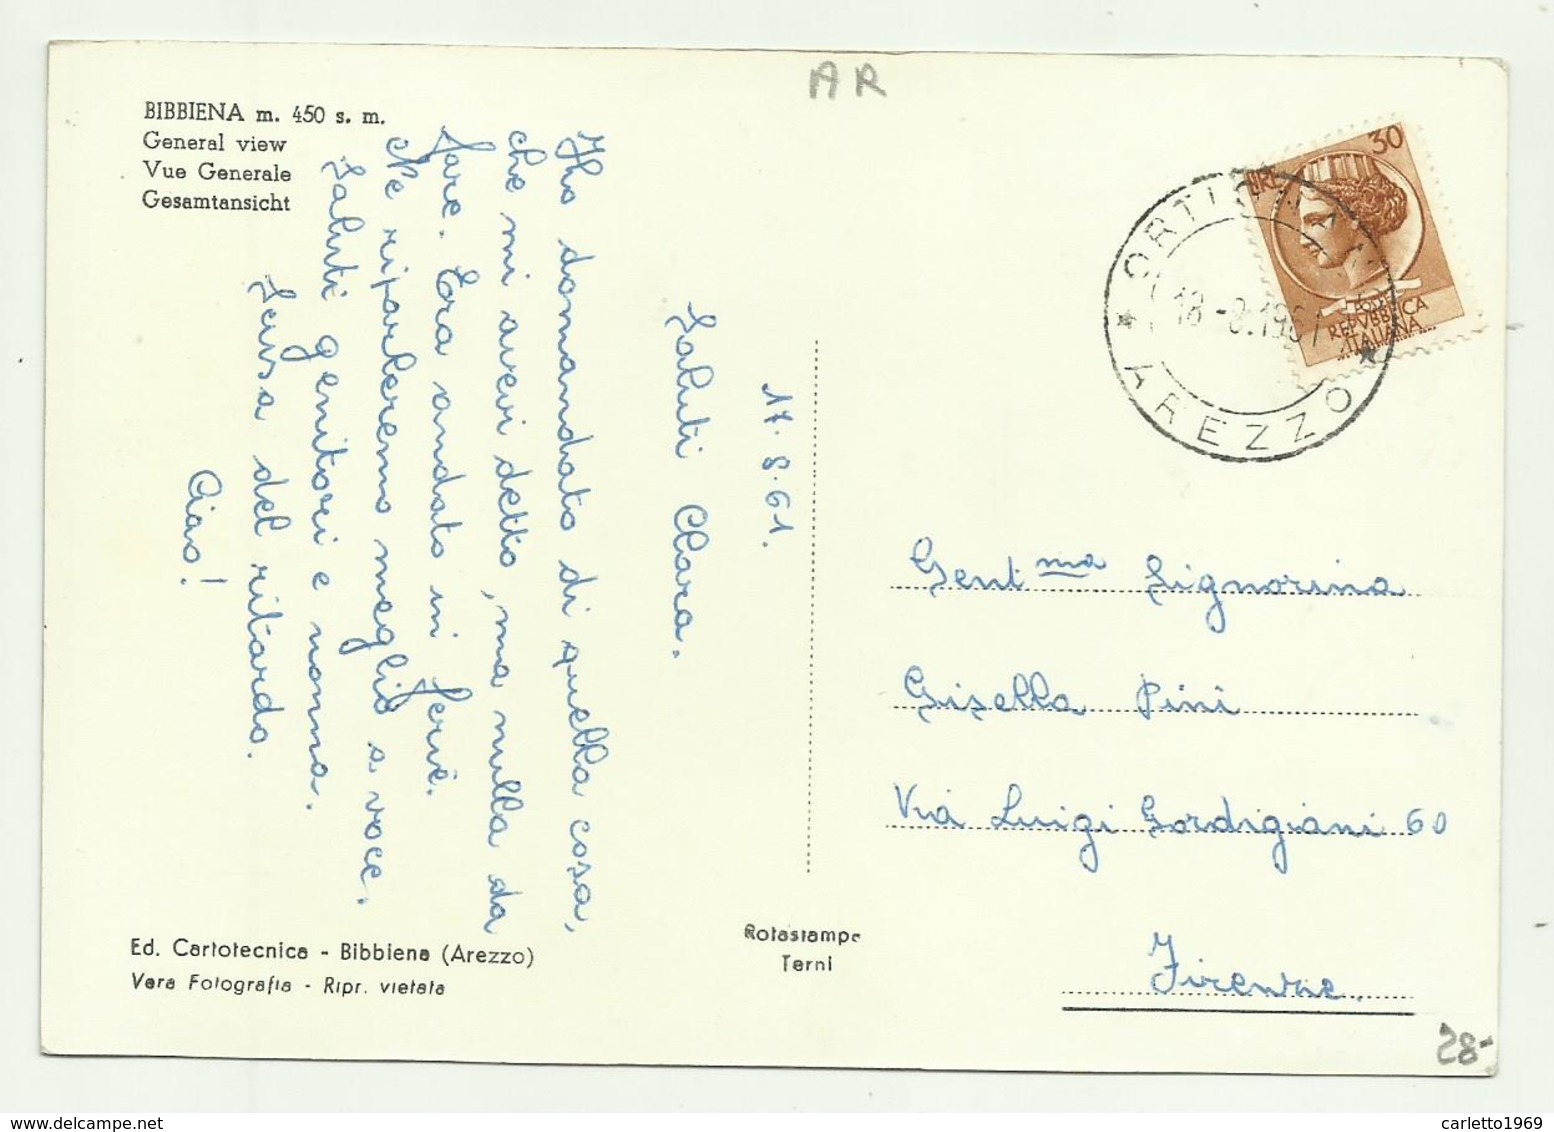 AR
BIBBIENA m. 450 s. m.
General view
Vue Generale
Gesamtansicht
17.8.61.
Saluti Clara.
Ho domandato di quella cosa,
che mi avevi detto, ma nulla da
fare. Era andato in ferie.
Ne riparleremo meglio a voce.
Saluti genitori e nonna.
Scusa del ritardo.
Ciao!
30
LIRE
REPVBBLICA
ITALIANA
ORTIGNANO
18-8.1961
* AREZZO *
Gent.ma Signorina
Gisella Pini
Via Luigi Gordigiani 60
Firenze.
Ed. Cartotecnica - Bibbiena (Arezzo)
Vera Fotografia - Ripr. vietata
Rotastampa
Terni
28-
carletto1969